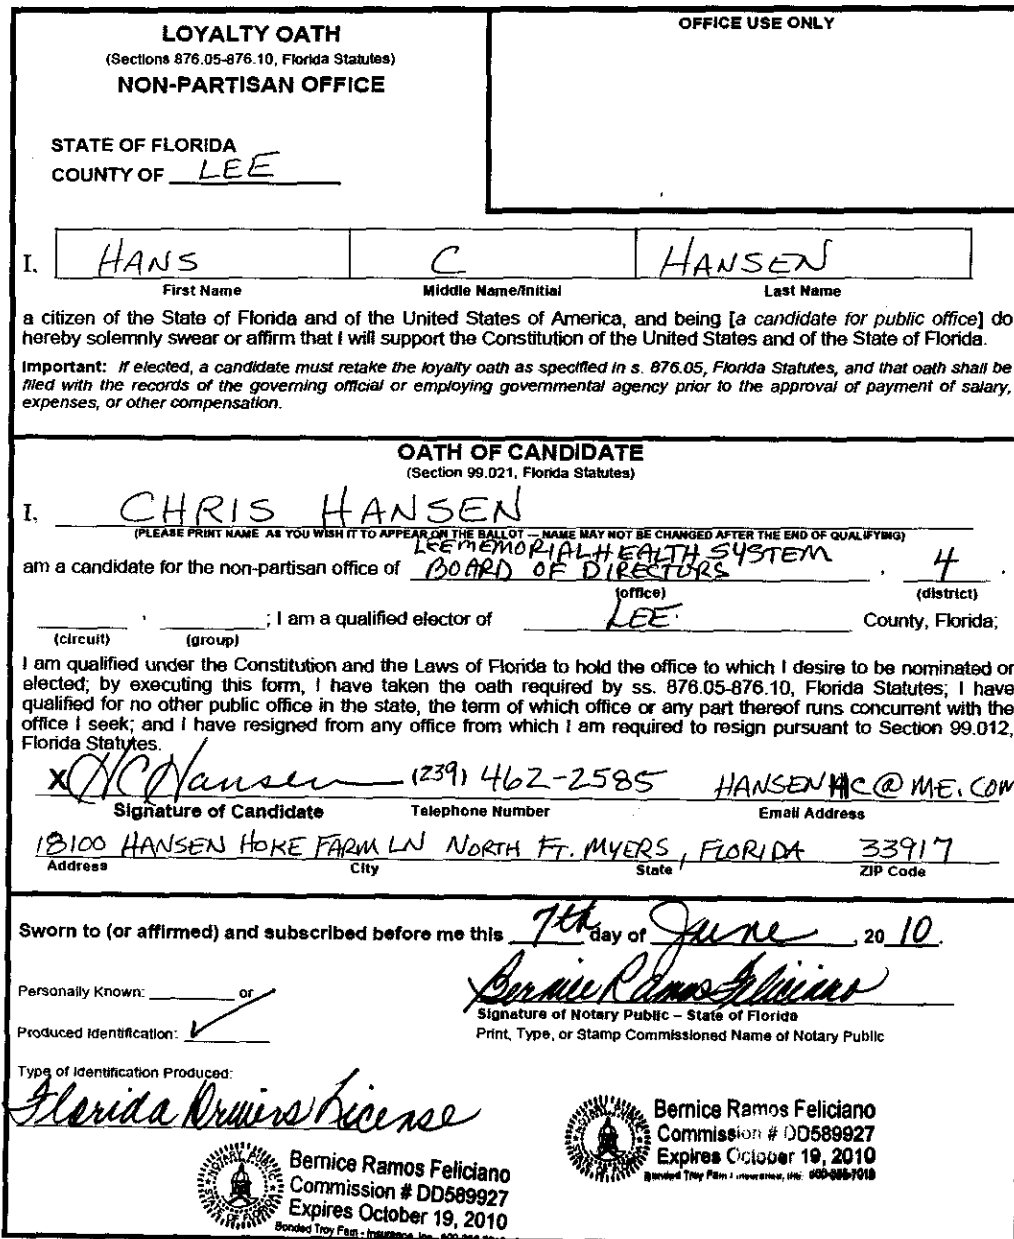 LOYALTY OATH
(Sections 876.05-876.10, Florida Statutes)
NON-PARTISAN OFFICE
OFFICE USE ONLY
STATE OF FLORIDA
COUNTY OF LEE
I, HANS C HANSEN
First Name Middle Name/Initial Last Name
a citizen of the State of Florida and of the United States of America, and being [a candidate for public office] do
hereby solemnly swear or affirm that I will support the Constitution of the United States and of the State of Florida.
Important: If elected, a candidate must retake the loyalty oath as specified in s. 876.05, Florida Statutes, and that oath shall be
filed with the records of the governing official or employing governmental agency prior to the approval of payment of salary,
expenses, or other compensation.
OATH OF CANDIDATE
(Section 99.021, Florida Statutes)
I, CHRIS HANSEN
(PLEASE PRINT NAME AS YOU WISH IT TO APPEAR ON THE BALLOT — NAME MAY NOT BE CHANGED AFTER THE END OF QUALIFYING)
LEE MEMORIAL HEALTH SYSTEM
am a candidate for the non-partisan office of BOARD OF DIRECTORS , 4 ,
(office) (district)
, ; I am a qualified elector of LEE County, Florida;
(circuit) (group)
I am qualified under the Constitution and the Laws of Florida to hold the office to which I desire to be nominated or
elected; by executing this form, I have taken the oath required by ss. 876.05-876.10, Florida Statutes; I have
qualified for no other public office in the state, the term of which office or any part thereof runs concurrent with the
office I seek; and I have resigned from any office from which I am required to resign pursuant to Section 99.012,
Florida Statutes.
X HC Hansen (239) 462-2585 HANSENHC@ME.COM
Signature of Candidate Telephone Number Email Address
18100 HANSEN HOKE FARM LN NORTH FT. MYERS, FLORIDA 33917
Address City State ZIP Code
Sworn to (or affirmed) and subscribed before me this 7th day of June, 2010.
Personally Known: or
Bernice Ramos Feliciano
Signature of Notary Public – State of Florida
Produced Identification: ✓
Print, Type, or Stamp Commissioned Name of Notary Public
Type of Identification Produced:
Florida Drivers License
Bernice Ramos Feliciano
Commission # DD589927
Expires October 19, 2010
Bonded Troy Fain - Insurance, Inc. 800-385-7019
Bernice Ramos Feliciano
Commission # DD589927
Expires October 19, 2010
Bonded Troy Fain - Insurance, Inc.